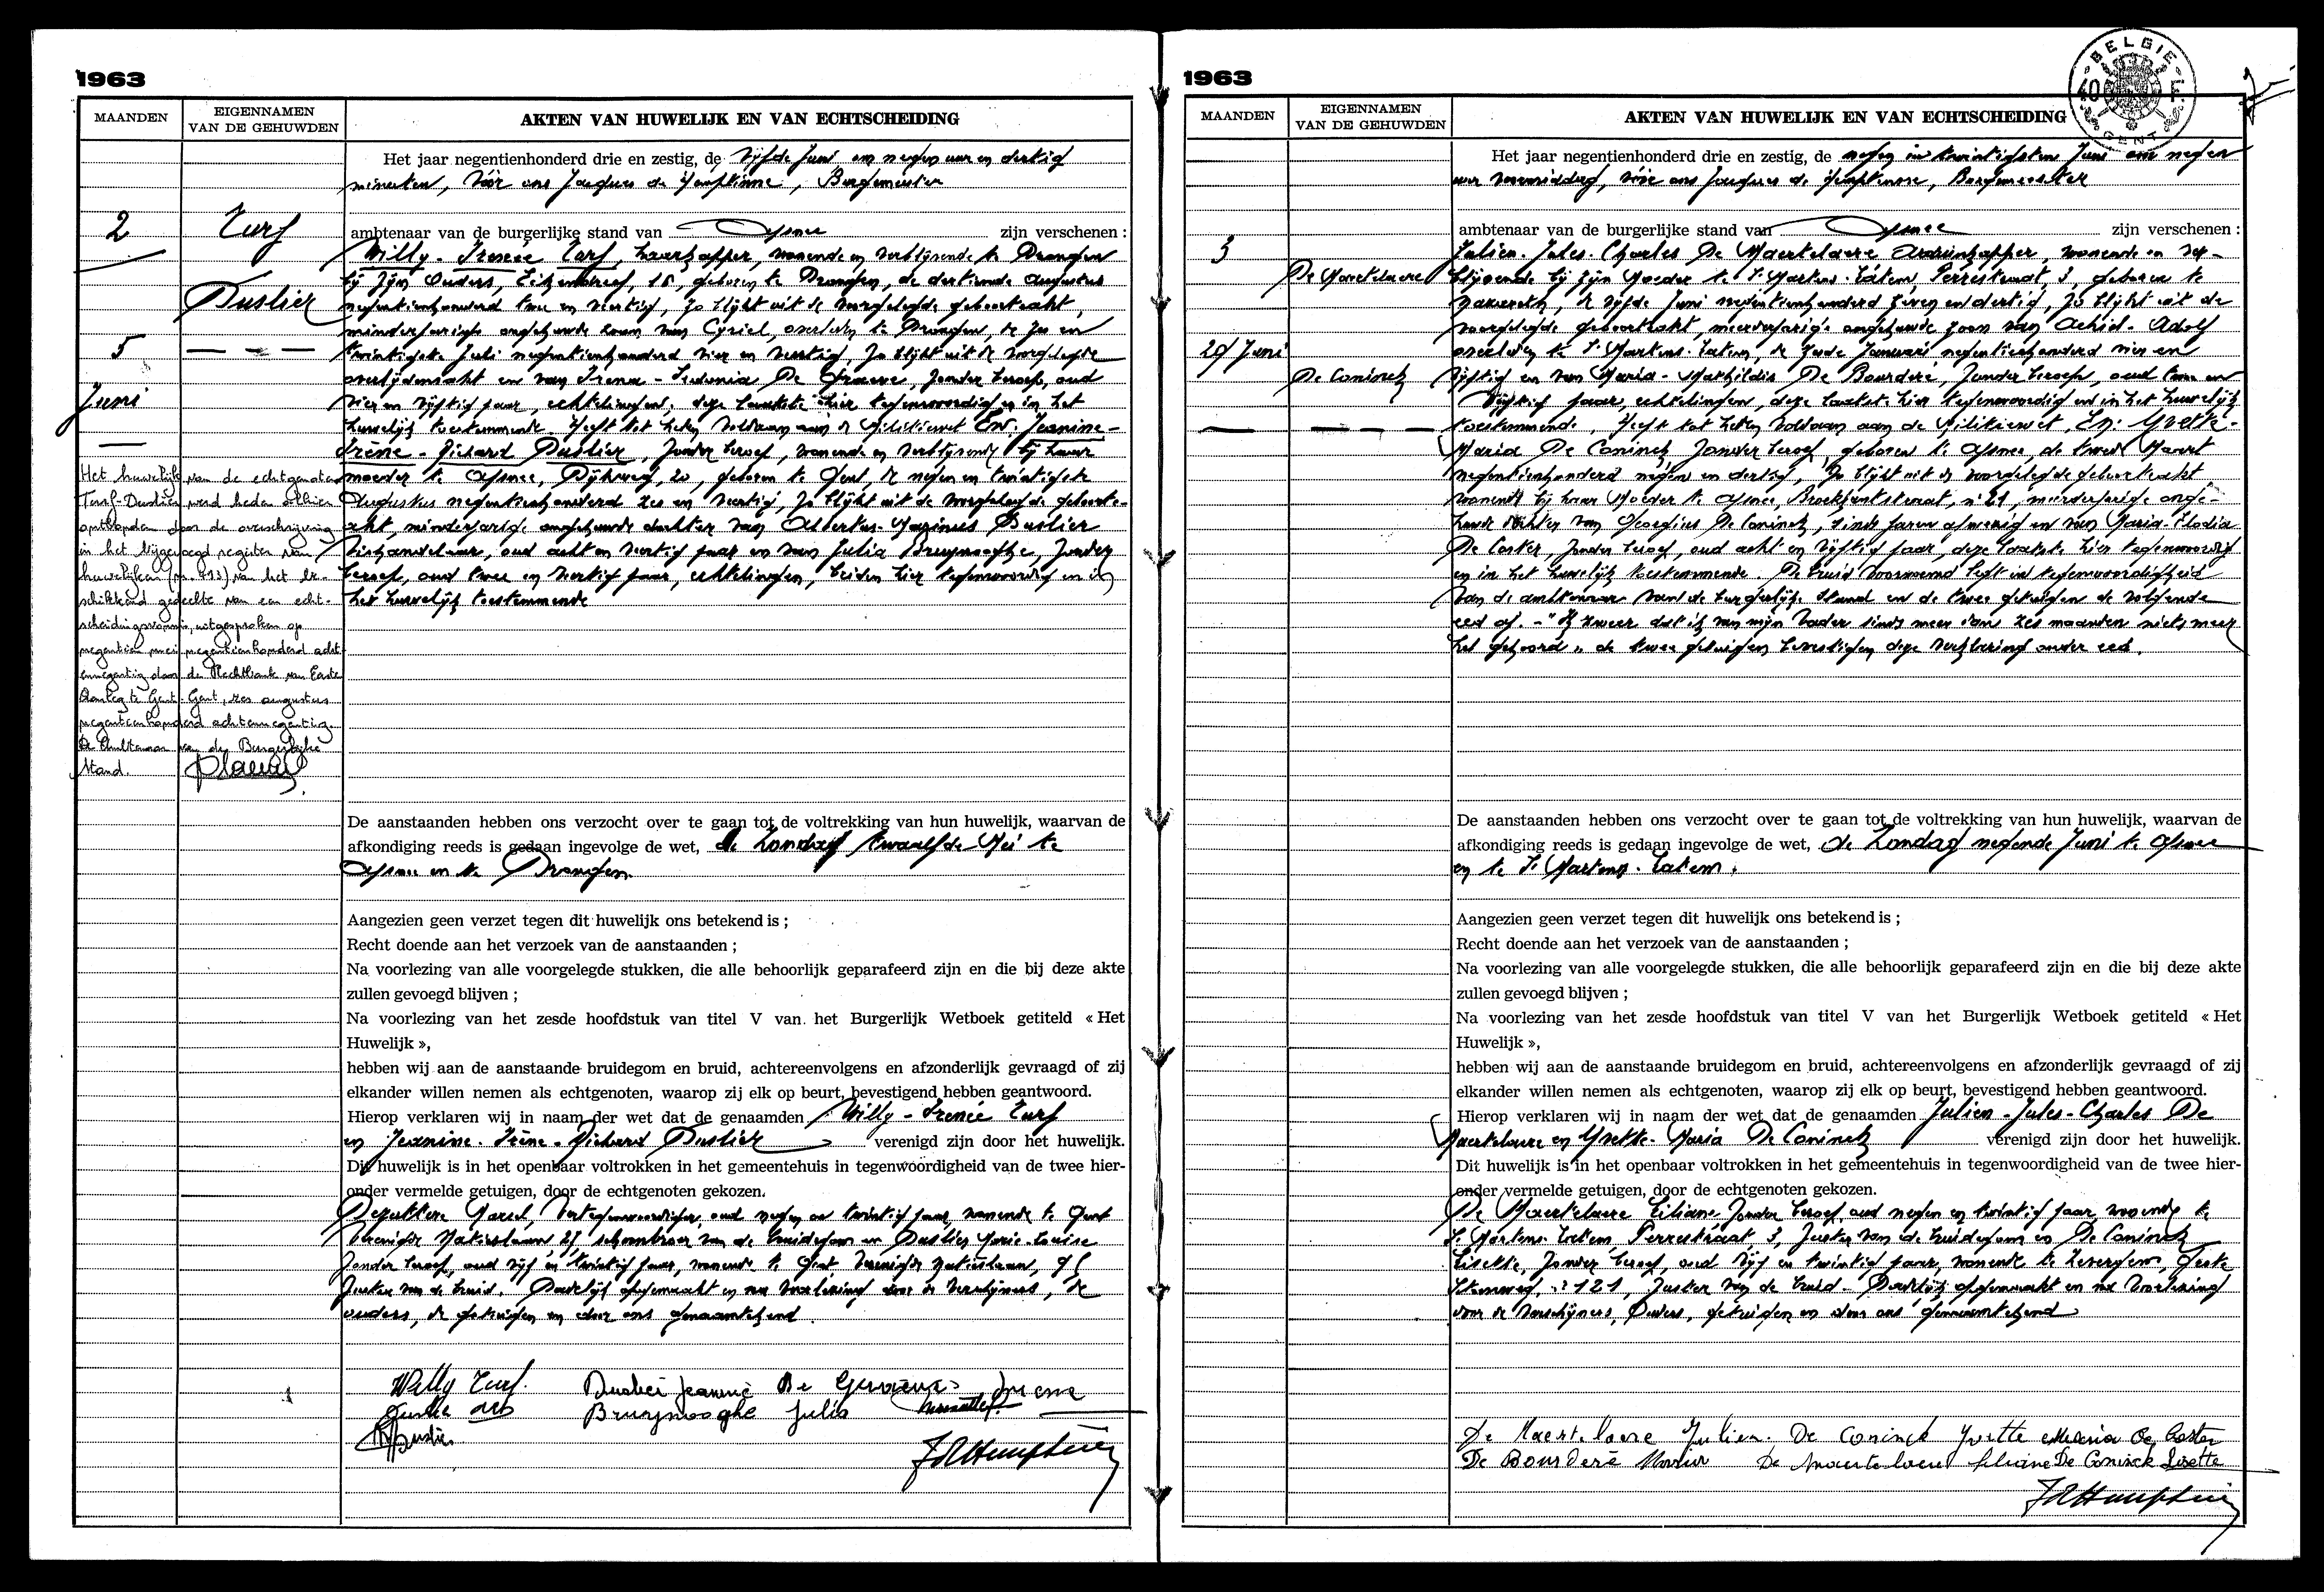 1963
MAANDEN
EIGENNAMEN
VAN DE GEHUWDEN
AKTEN VAN HUWELIJK EN VAN ECHTSCHEIDING
Het jaar negentienhonderd drie en zestig, de vijfde Juni om negen uur en dertig
minuten, vóór ons Jacques de Hemptinne, Burgemeester
2
Turf
ambtenaar van de burgerlijke stand van Afsnee zijn verschenen :
Willy - Irenée Turf, wonende en verblijvende te Drongen
bij zijn Ouders, 18, geboren te Drongen, de dertiende Augustus
Dustier
negentienhonderd twee en veertig, zo blijkt uit de voorgelegde geboorteakt,
minderjarige ongehuwde zoon van Cyriel, overleden te Drongen, de zes en
5
twintigste Juli negentienhonderd vier en veertig, zo blijkt uit de voorgelegde
overlijdensakt en van Irena - De Graeve, zonder beroep, oud
Juni
vier en vijftig jaar, echtelingen, deze laatste hier tegenwoordig en in het
huwelijk toestemmende. Heeft tot heden voldaan aan de Militiewet En: Jeanine -
Irène - Richard Dustier, zonder beroep, wonende en verblijvende bij haar
moeder te Afsnee, Dijkweg, 20, geboren te Gent, de negen en twintigste
Augustus negentienhonderd zes en veertig, zo blijkt uit de voorgelegde geboorte-
akt, minderjarige ongehuwde dochter van Albertus - Marinus Dustier
vishandelaar, oud acht en veertig jaar en van Julia Bruynooghe, zonder
beroep, oud twee en veertig jaar, echtelingen, beiden hier tegenwoordig en in
het huwelijk toestemmende
Het huwelijk van de echtgenoten
Turf-Dustier werd heden alhier
ontbonden door de overschrijving
in het bijgevoegd register van
huwelijken (nr. 913) van het be-
schikkend gedeelte van een echt-
scheidingsvonnis, uitgesproken op
negentien mei negentienhonderd acht
ennegentig door de Rechtbank van Eerste
Aanleg te Gent. Gent, zes augustus
negentienhonderd achtennegentig.
De Ambtenaar van de Burgerlijke
Stand.
De aanstaanden hebben ons verzocht over te gaan tot de voltrekking van hun huwelijk, waarvan de
afkondiging reeds is gedaan ingevolge de wet, de Zondag twaalfde Mei te
Afsnee en te Drongen
Aangezien geen verzet tegen dit huwelijk ons betekend is ;
Recht doende aan het verzoek van de aanstaanden ;
Na voorlezing van alle voorgelegde stukken, die alle behoorlijk geparafeerd zijn en die bij deze akte
zullen gevoegd blijven ;
Na voorlezing van het zesde hoofdstuk van titel V van het Burgerlijk Wetboek getiteld « Het
Huwelijk »,
hebben wij aan de aanstaande bruidegom en bruid, achtereenvolgens en afzonderlijk gevraagd of zij
elkander willen nemen als echtgenoten, waarop zij elk op beurt, bevestigend hebben geantwoord.
Hierop verklaren wij in naam der wet dat de genaamden Willy - Irenée Turf
en Jeanine - Irène - Richard Dustier verenigd zijn door het huwelijk.
Dit huwelijk is in het openbaar voltrokken in het gemeentehuis in tegenwoordigheid van de twee hier-
onder vermelde getuigen, door de echtgenoten gekozen.
Marcel, Vertegenwoordiger, oud negen en twintig jaar, wonende te Gent
Verenigde Natieslaan, schoonbroer van de bruidegom en Dustier Marie-Louise
zonder beroep, oud vijf en twintig jaar, wonende te Gent Verenigde Natieslaan,
zuster van de bruid. Dadelijk opgemaakt en na voorlezing door de verschijners, de
ouders, de getuigen en door ons genaamtekend.
Willy Turf. Dustier Jeanine De Graeve Irena
Bruynooghe Julia
Dustier
JdHemptinne
1963
BELGIE
40 F.
GENT
MAANDEN
EIGENNAMEN
VAN DE GEHUWDEN
AKTEN VAN HUWELIJK EN VAN ECHTSCHEIDING
Het jaar negentienhonderd drie en zestig, de negen en twintigsten Juni om negen
uur voormiddag, vóór ons Jacques de Hemptinne, Burgemeester
3
ambtenaar van de burgerlijke stand van Afsnee zijn verschenen :
Julien - Jules - Charles De Maertelaere, wonende en ver-
De Maertelaere
blijvende bij zijn Moeder te St Martens-Latem, Perrestraat, 3, geboren te
Nazareth, de vijfde Juni negentienhonderd zeven en dertig, zo blijkt uit de
voorgelegde geboorteakt, meerderjarige ongehuwde zoon van Achiel - Adolf
29 Juni
overleden te St Martens-Latem, de Januari negentienhonderd vier en
De Coninck
vijftig en van Maria - Mathildis De Bourderé, zonder beroep, oud en
vijftig jaar, echtelingen, deze laatste hier tegenwoordig en in het huwelijk
toestemmende. Heeft tot heden voldaan aan de Militiewet, En: Yvette -
Maria De Coninck zonder beroep, geboren te Afsnee, de tweede Maart
negentienhonderd negen en dertig, zo blijkt uit de voorgelegde geboorteakt
wonende bij haar Moeder te Afsnee, Broekkantstraat, n° 21, meerderjarige onge-
huwde dochter van Georgius De Coninck, sinds jaren afwezig en van Maria - Elodia
De Coster, zonder beroep, oud acht en vijftig jaar, deze laatste hier tegenwoordig
en in het huwelijk toestemmende. De bruid voornoemd legt in tegenwoordigheid
van de ambtenaar van de burgerlijke stand en de twee getuigen de volgende
eed af. - "Ik zweer dat ik van mijn Vader sinds meer dan zes maanden niets meer
heb gehoord" de twee getuigen bevestigen deze verklaring onder eed.
De aanstaanden hebben ons verzocht over te gaan tot de voltrekking van hun huwelijk, waarvan de
afkondiging reeds is gedaan ingevolge de wet, de Zondag negende Juni te Afsnee
en te St Martens-Latem.
Aangezien geen verzet tegen dit huwelijk ons betekend is ;
Recht doende aan het verzoek van de aanstaanden ;
Na voorlezing van alle voorgelegde stukken, die alle behoorlijk geparafeerd zijn en die bij deze akte
zullen gevoegd blijven ;
Na voorlezing van het zesde hoofdstuk van titel V van het Burgerlijk Wetboek getiteld « Het
Huwelijk »,
hebben wij aan de aanstaande bruidegom en bruid, achtereenvolgens en afzonderlijk gevraagd of zij
elkander willen nemen als echtgenoten, waarop zij elk op beurt, bevestigend hebben geantwoord.
Hierop verklaren wij in naam der wet dat de genaamden Julien - Jules - Charles De
Maertelaere en Yvette - Maria De Coninck verenigd zijn door het huwelijk.
Dit huwelijk is in het openbaar voltrokken in het gemeentehuis in tegenwoordigheid van de twee hier-
onder vermelde getuigen, door de echtgenoten gekozen.
De Maertelaere Liliane zonder beroep, oud negen en twintig jaar, wonende te
St Martens-Latem, Perrestraat 3, zuster van de bruidegom en De Coninck
Lisette, zonder beroep, oud vijf en twintig jaar, wonende te Zevergem,
Steenweg, n° 121, zuster van de bruid. Dadelijk opgemaakt en na voorlezing
door de verschijners, Ouders, getuigen en door ons genaamtekend
De Maertelaere Julien. De Coninck Yvette Maria De Coster
De Bourderé Maria De Maertelaere Liliane De Coninck Lisette
JdHemptinne